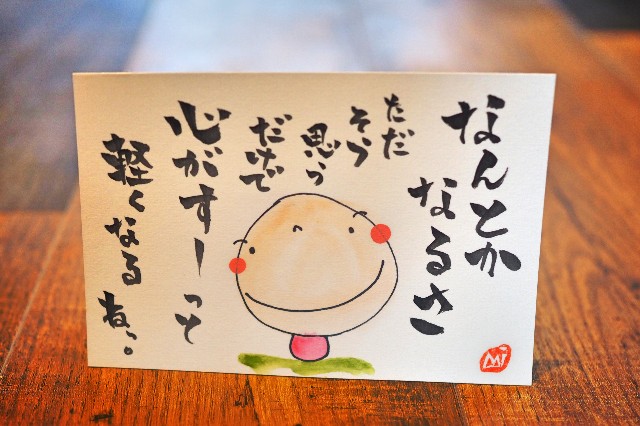 なんとか
なるさ
ただ
そう
思う
だけで
心がすーって
軽くなる
ねっ。
MI